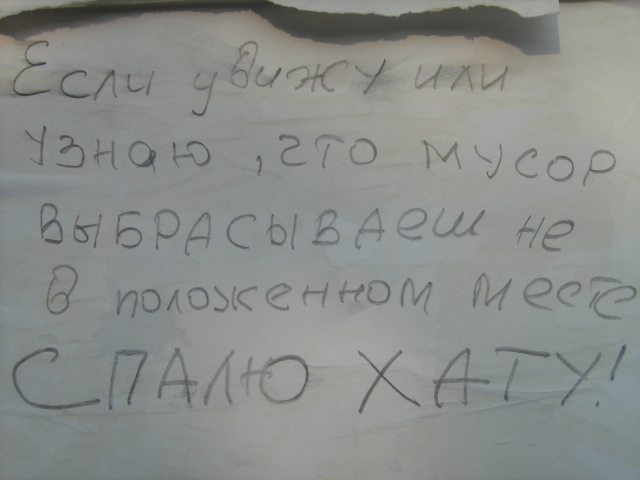 Если увижу или
узнаю, что мусор
выбрасываеш не
в положенном месте
СПАЛЮ ХАТУ!